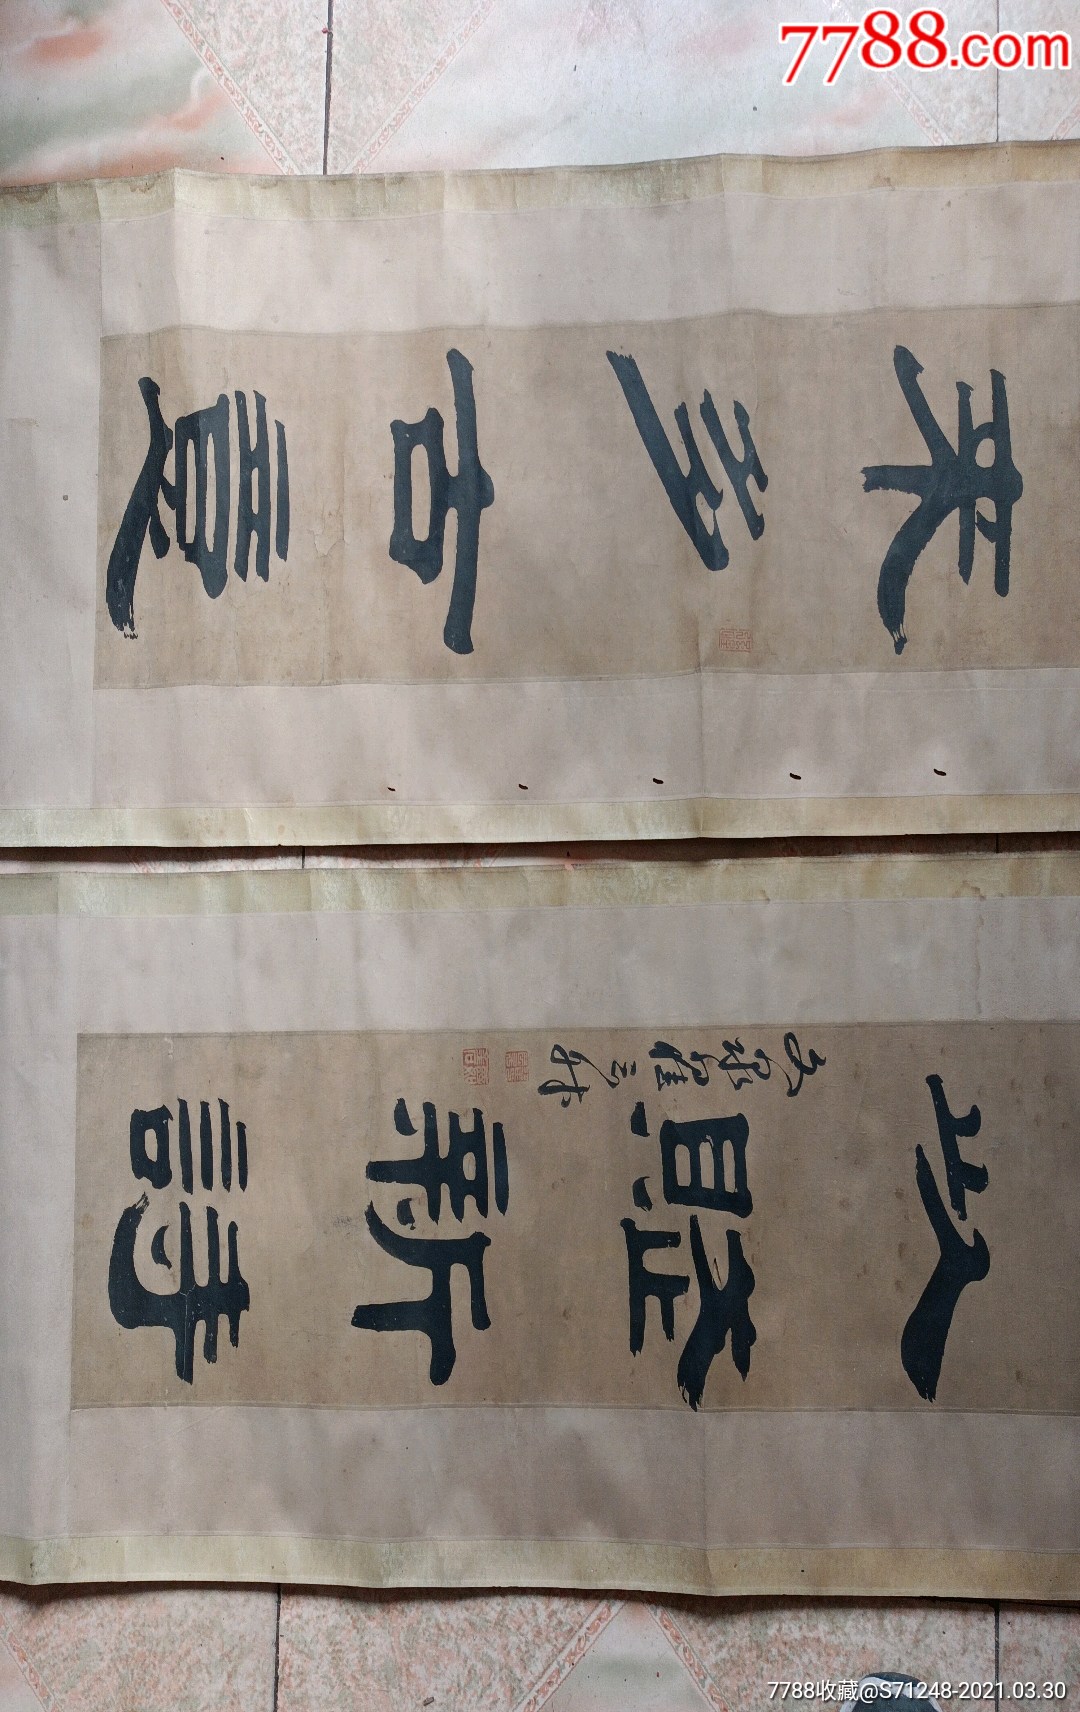 7788.com
来多古意
以賦新詩
7788收藏@S71248-2021.03.30